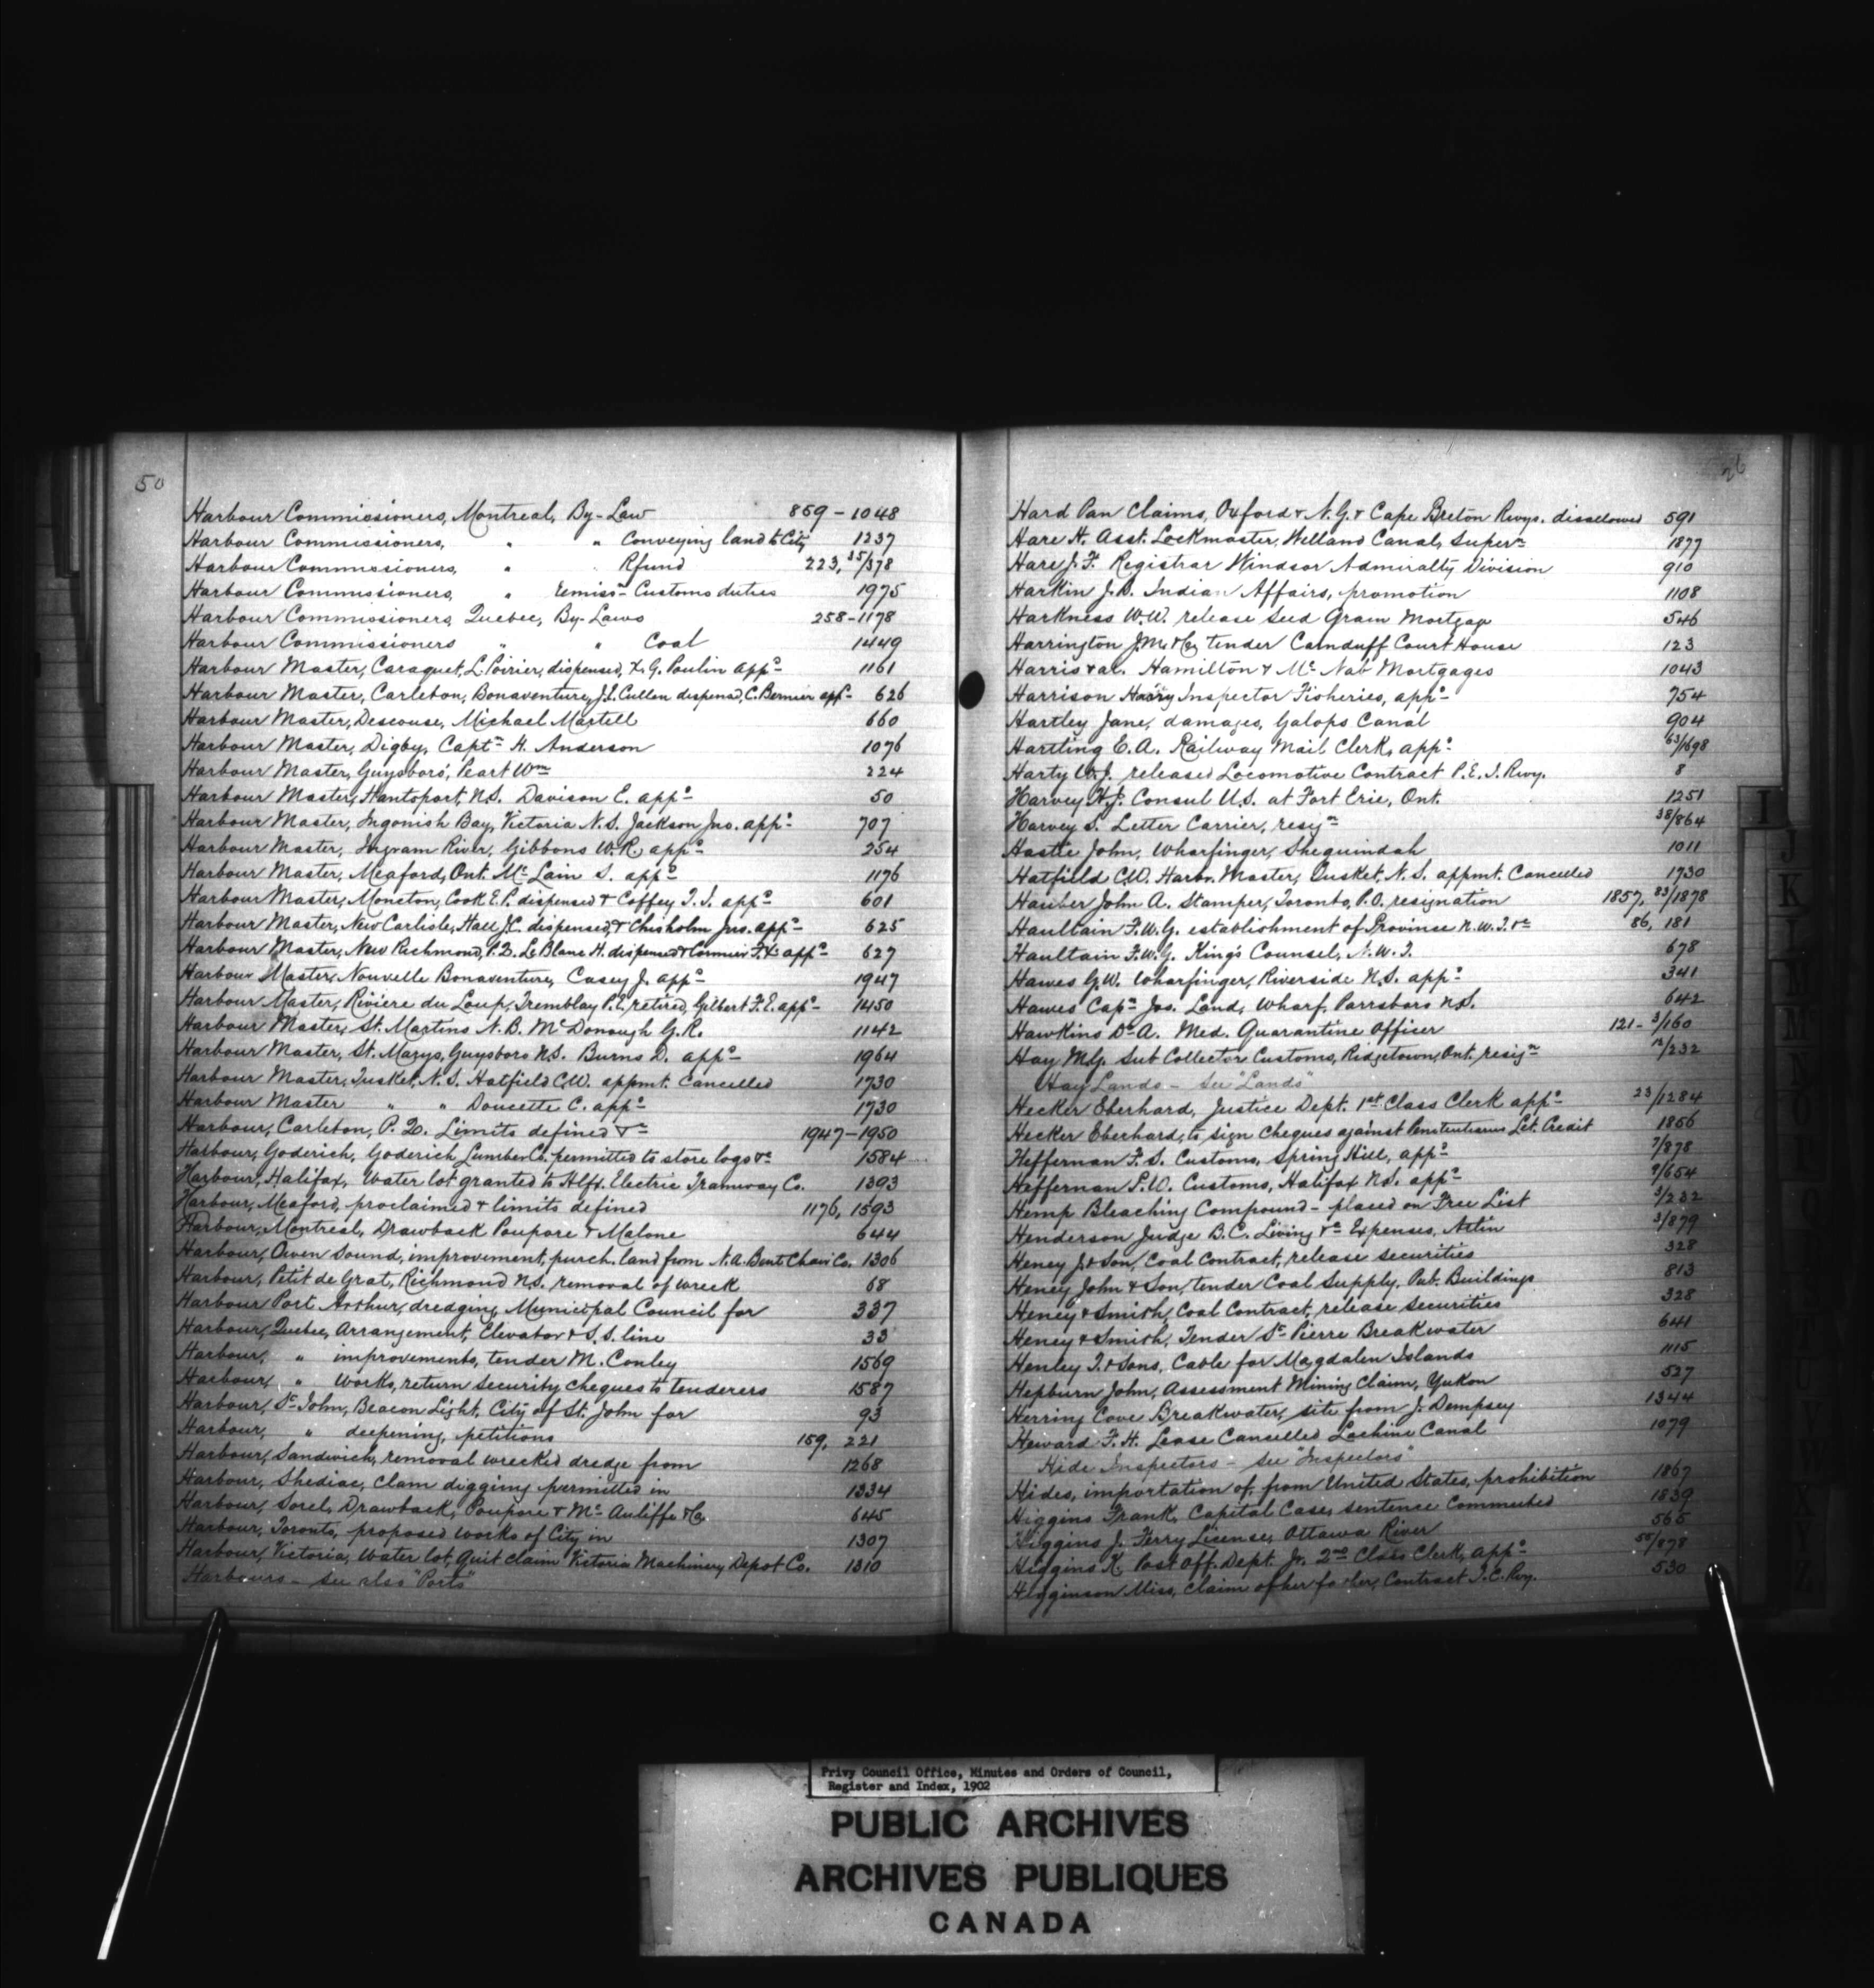 50
Harbour Commissioners, Montreal, By-Law 859 - 1048
Harbour Commissioners, " " Conveying land to City 1237
Harbour Commissioners, " " Rfund 223, 35/378
Harbour Commissioners, " remiss- Customs duties 1975
Harbour Commissioners, Quebec, By-Laws 258-1178
Harbour Commissioners " " Coal 1449
Harbour Master, Caraquet, L. Poirier, dispensed, F. G. Poulin appt 1161
Harbour Master, Carleton, Bonaventure, J.L. Cullen dispensed, C. Bernier appt 626
Harbour Master, Descouse, Michael Martell 660
Harbour Master, Digby, Captn H. Anderson 1076
Harbour Master, Guysboro', Peart Wm 224
Harbour Master, Hantsport, N.S. Davison E. appt 50
Harbour Master, Ingonish Bay, Victoria N.S. Jackson Jno. appt 707
Harbour Master, Ingram River, Gibbons W.R. appt 254
Harbour Master, Meaford, Ont. Mc Lain S. appt 1176
Harbour Master, Moncton, Cook E.P. dispensed & Coffey T. J. appt 601
Harbour Master, New Carlisle, Hall J.C. dispensed, & Chisholm Jno. appt 625
Harbour Master, New Richmond, P.Q. Le Blanc H. dispensed & Cormier F.X. appt 627
Harbour Master, Nouvelle Bonaventure, Casey J. appt 1947
Harbour Master, Rivière du Loup, Tremblay P.C. retired, Gilbert F.E. appt 1450
Harbour Master, St. Martins N.B. Mc Donough G.R. 1142
Harbour Master, St. Marys, Guysboro N.S. Burns D. appt 1964
Harbour Master, Tusket, N.S. Hatfield C.W. appmt. Cancelled 1730
Harbour Master " " Doucette C. appt 1730
Harbour, Carleton, P.Q. Limits defined &c 1947-1950
Harbour, Goderich, Goderich Lumber Co. permitted to store logs &c 1584
Harbour, Halifax, Water lot granted to Hlfx. Electric Tramway Co. 1393
Harbour, Meaford, proclaimed & limits defined 1176, 1593
Harbour, Montreal, Drawback Poupore & Malone 644
Harbour, Owen Sound, improvement, purch. land from N.A. Bent Chair Co. 1306
Harbour, Petit de Grat, Richmond N.S. removal of wreck 68
Harbour Port Arthur, dredging, Municipal Council for 337
Harbour, Quebec, Arrangement, Elevator & S.S. line 33
Harbour, " improvements, tender M. Conley 1569
Harbour, " Works, return security cheques to tenderers 1587
Harbour, St. John, Beacon Light, City of St. John for 93
Harbour, " deepening, petitions 159, 221
Harbour, Sandwich, removal wrecked dredge from 1268
Harbour, Shediac, Clam digging permitted in 1334
Harbour, Sorel, Drawback, Poupore & Mc Auliffe & Co. 645
Harbour, Toronto, proposed works of City in 1307
Harbour, Victoria, Water lot, Quit claim Victoria Machinery Depot Co. 1310
Harbours - see also "Ports"
26
Hard Pan Claims, Oxford & N.G. & Cape Breton Rwys. disallowed 591
Hare H. Asst. Lockmaster, Welland Canal, Supern 1877
Hare J. F. Registrar Windsor Admiralty Division 910
Harkin J.B. Indian Affairs, promotion 1108
Harkness W.W. release Seed Grain Mortgage 546
Harrington J.M. & Co. tender Carnduff Court House 123
Harris & al. Hamilton & Mc Nab Mortgages 1043
Harrison Harry Inspector Fisheries, appt 754
Hartley Jane, damages, Galops Canal 904
Hartling E.A. Railway Mail Clerk, appt 63/1698
Harty W.J. released Locomotive Contract P.E.I. Rwy. 8
Harvey H.J. Consul U.S. at Fort Erie, Ont. 1251
Harvey S. Letter Carrier, resign 38/864
Hastie John, Wharfinger, Sheguindah 1011
Hatfield C.W. Harbr. Master, Tusket, N.S. appmt. Cancelled 1730
Hauber John A. Stamper, Toronto, P.O. resignation 1857, 83/1878
Haultain F.W.G. establishment of Province N.W.T. &c 86, 181
Haultain F.W.G. King's Counsel, N.W.T. 678
Hawes G.W. Wharfinger, Riverside N.S. appt 341
Hawes Capn Jos. Land, Wharf, Parrsboro N.S. 642
Hawkins Dr A. Med. Quarantine Officer 121 - 3/160
Hay M.G. Sub Collector Customs, Ridgetown, Ont. resign 12/232
Hay Lands - See "Lands"
Hecker Eberhard, Justice Dept. 1st Class Clerk appt 23/1284
Hecker Eberhard, to sign Cheques against Penitentiaries Let. Credit 1856
Heffernan F. S. Customs, Spring Hill, appt 7/878
Heffernan P.W. Customs, Halifax N.S. appt 9/654
Hemp Bleaching Compound - placed on Free List 3/232
Henderson Judge B.C. Living &c Expenses, Atlin 3/879
Heney J. & Son, Coal Contract, release securities 328
Heney John & Son, tender Coal Supply, Pub. Buildings 813
Heney & Smith, Coal Contract, release securities 328
Heney & Smith, Tender St Pierre Breakwater 641
Henley T. & Sons, Cable for Magdalen Islands 1115
Hepburn John, Assessment Mining Claim, Yukon 527
Herring Cove Breakwater, site from J. Dempsey 1344
Heward F.H. Lease Cancelled Lachine Canal 1079
Hide Inspectors - see "Inspectors"
Hides, importation of, from United States, prohibition 1867
Higgins Frank, Capital Case, sentence Commuted 1839
Higgins J. Ferry License, Ottawa River 565
Higgins K. Post Off. Dept. Jr. 2nd Class Clerk, appt 55/878
Higginson Miss, Claim of her father, Contract I.C. Rwy. 530
I
J
K
Privy Council Office, Minutes and Orders of Council,
Register and Index, 1902
PUBLIC ARCHIVES
ARCHIVES PUBLIQUES
CANADA